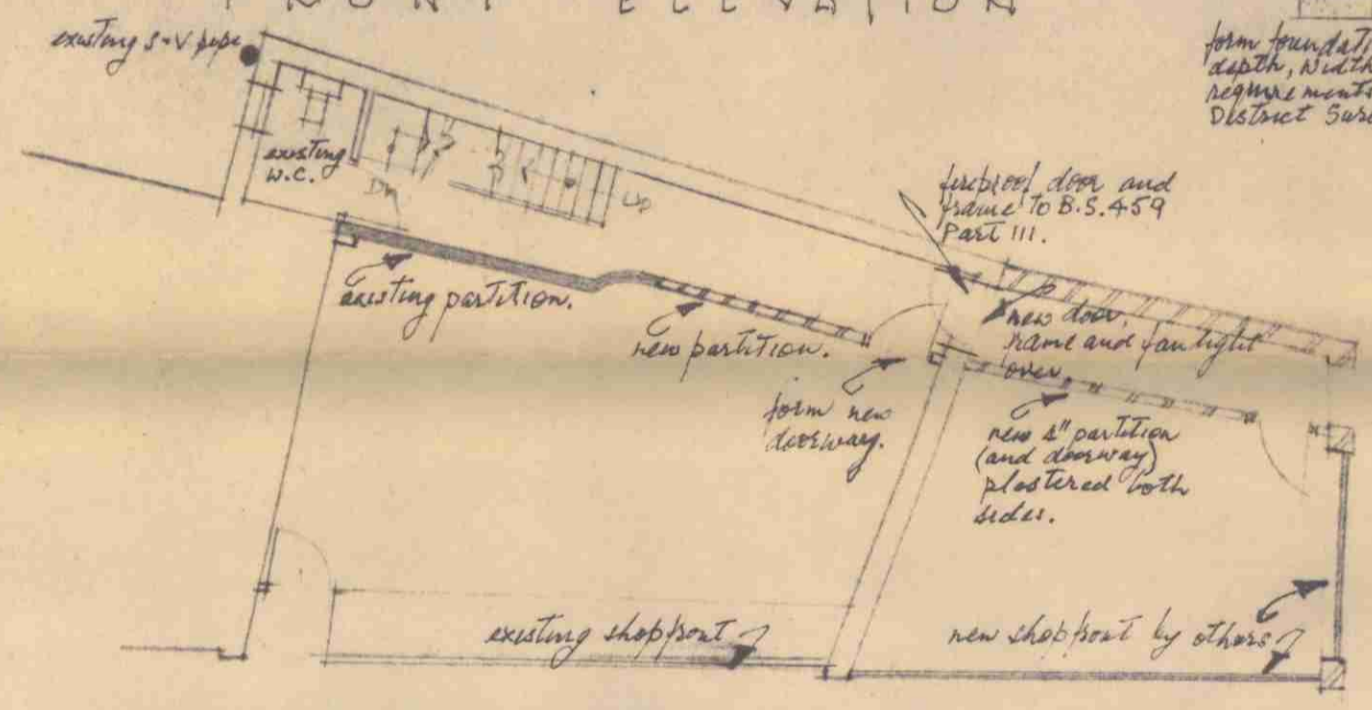 FRONT ELEVATION
existing S-V pipe
form foundat
depth, width
requirements
District Surv
existing
W.C.
Dn
Up
fireproof door and
frame to B.S. 459
Part III.
existing partition.
new partition.
new door,
frame and fanlight
over
form new
doorway.
new 4" partition
(and doorway)
plastered both
sides.
existing shopfront
new shopfront by others